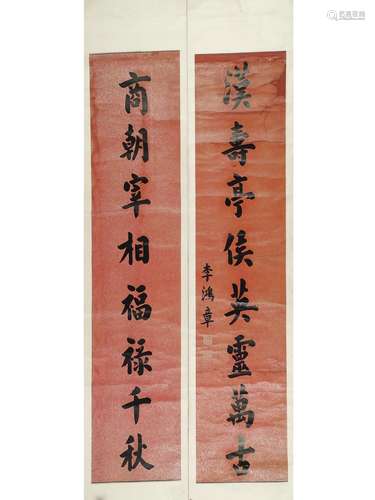 漢壽亭侯英靈萬古
李鴻章
商朝宰相福祿千秋